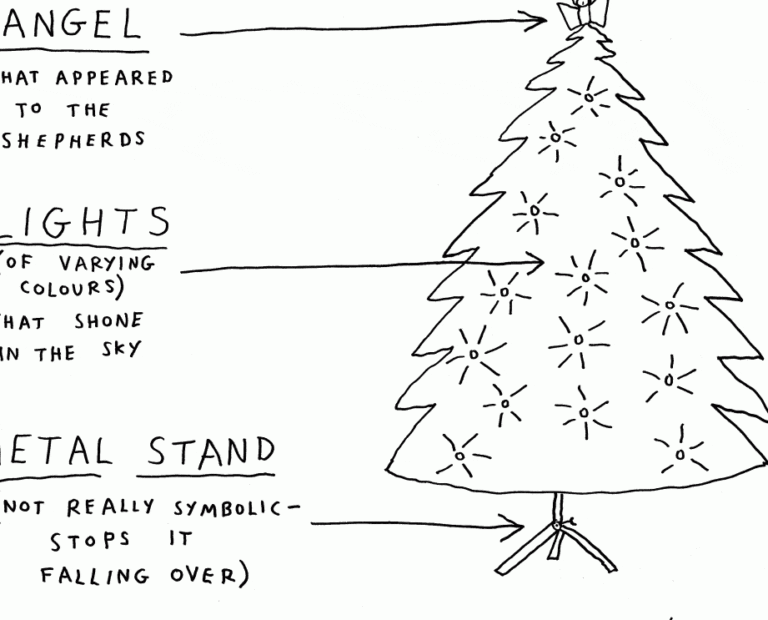 ANGEL
HAT APPEARED
TO THE
SHEPHERDS
LIGHTS
(OF VARYING
COLOURS)
HAT SHONE
IN THE SKY
ETAL STAND
NOT REALLY SYMBOLIC-
STOPS IT
FALLING OVER)